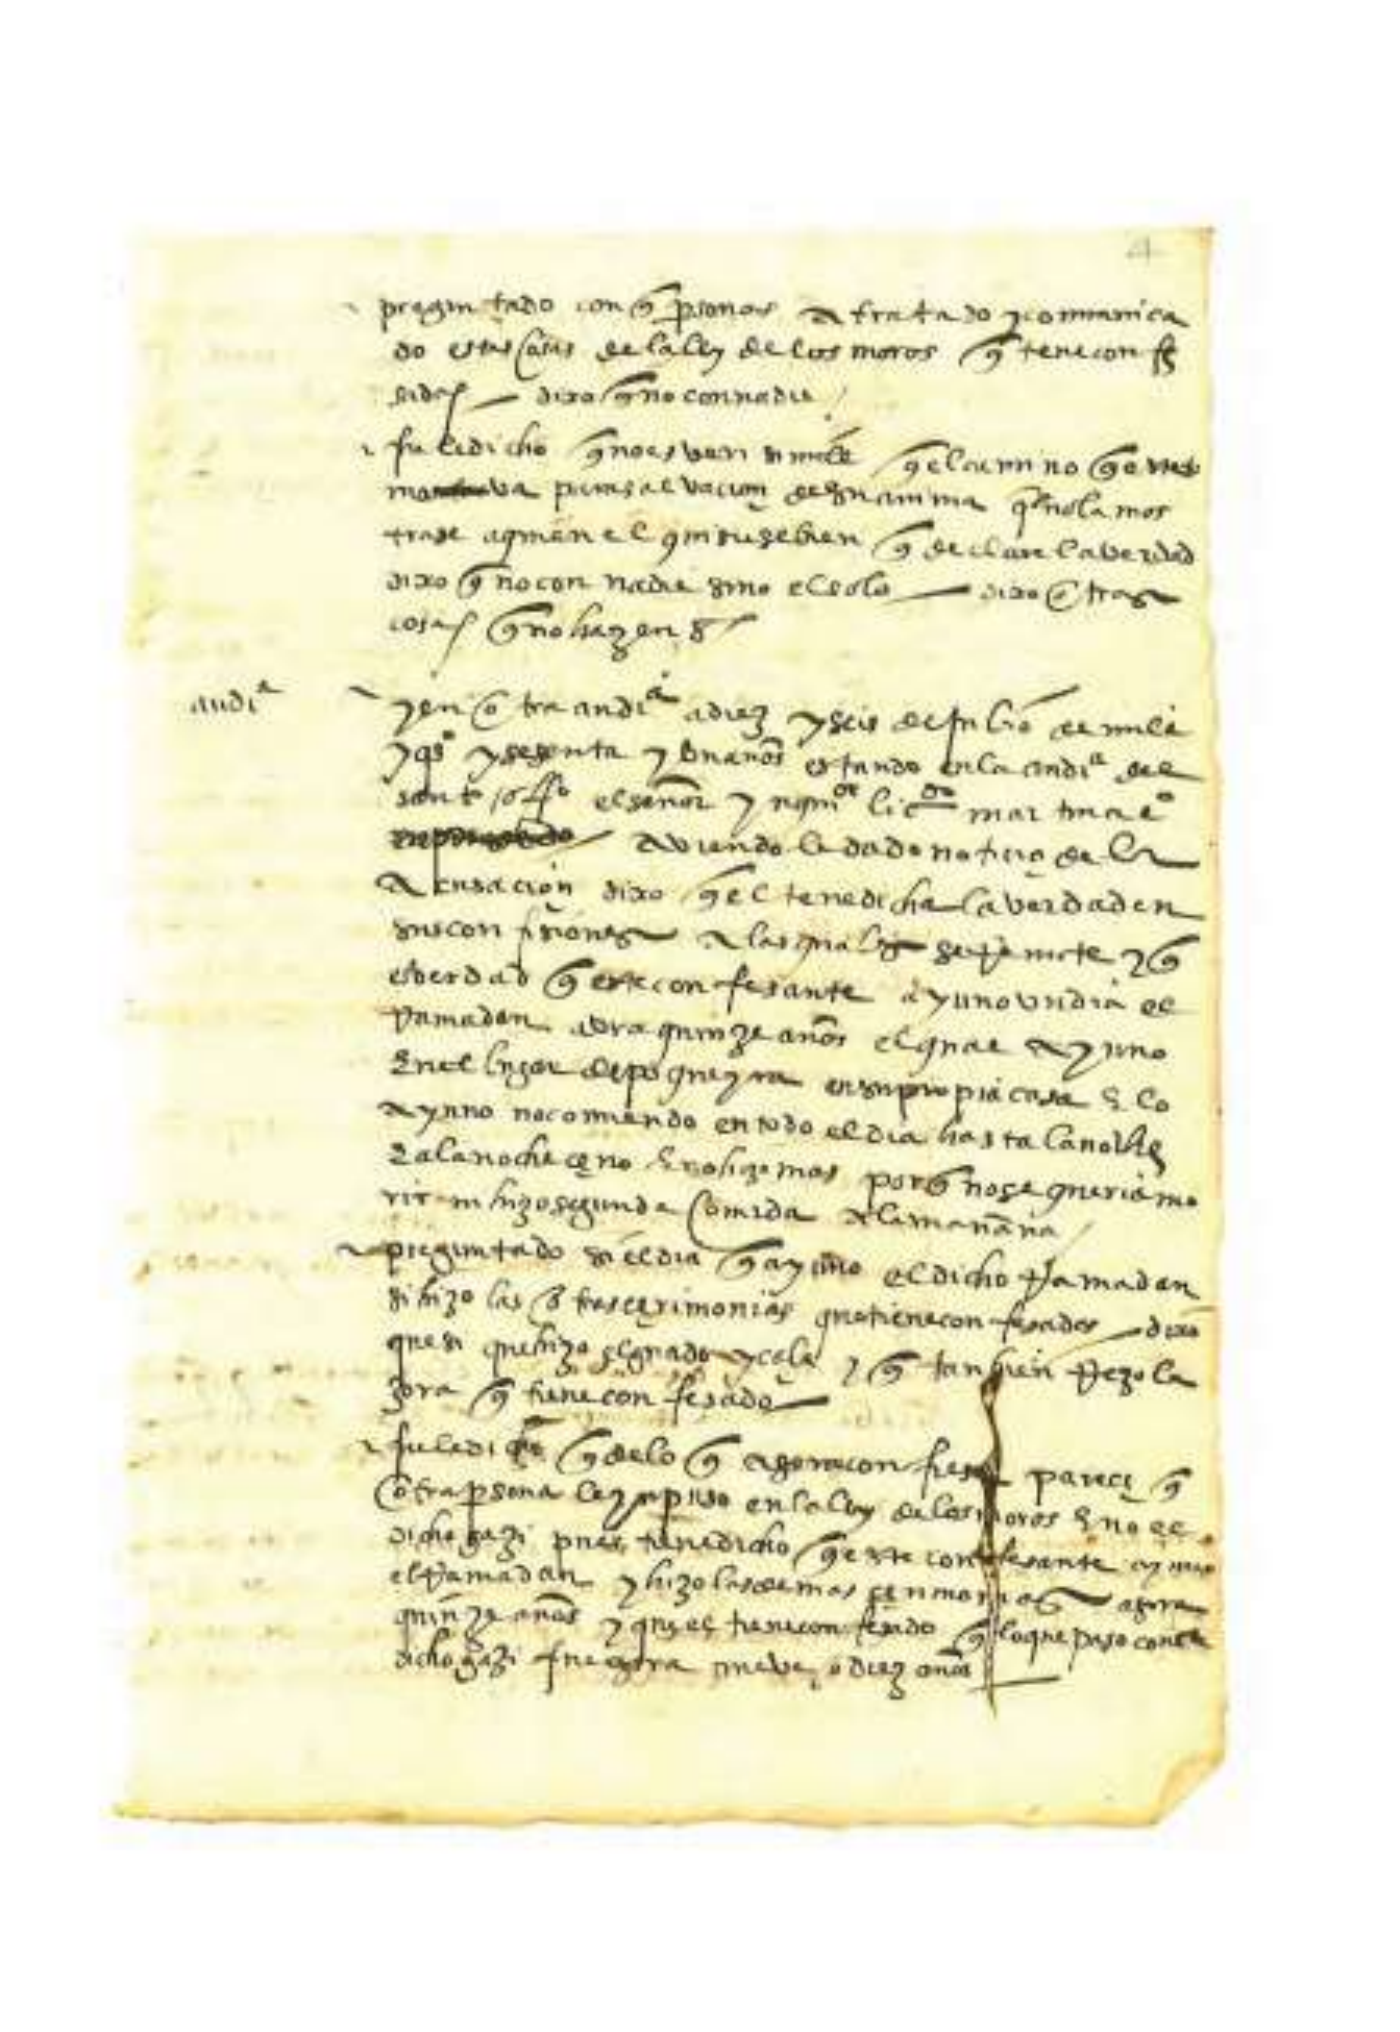 4
preguntado con q personas a tratado y comunica
do estas cosas de la ley de los moros q tiene confe
sadas — dixo q no con nadie
fuele dicho q no es verisimile q el camino q el
va para salvacion de su anima q no la mos
trase a quien el quisiese bien q declare la verdad
dixo q no con nadie sino el solo — dixo otras
cosas q no hazen g
audiª
y en otra audiª a diez y seis de Julio de mill e
y qºs y sesenta y un años estando en la audiª del
santo offº el señor ynqºr licdo martin aº
aviendole dado noticia de la
acusacion dixo q el tiene dicha la verdad en
sus confisiones a las quales se Remete y q
es verdad q este confesante ayuno un dia el
Ramadan abra quinze años el qual ayuno
en el lugar de poqueyra en su propia casa e lo
ayuno no comiendo en todo el dia hasta la noche
e a la noche ceno e no hizo mas porq no se queria mo
rir ni hizo segunda comida a la mañana
preguntado si el dia q ayuno el dicho Ramadan
si hizo las otras cerimonias que tiene confesadas — dixo
que si que hizo el guado y cala y q tanbien Rezo la
zora q tiene confesado —
fuele dicho q de lo q agora confiesa parece q
otra persona le ynpuso en la ley de los moros e no el
dicho gazi pues tiene dicho q este confesante ayuno
el Ramadan y hizo las demas cerimonias agora
quinze años y pues el tiene confesado q lo que paso con el
dicho gazi fue agora nueve o diez años